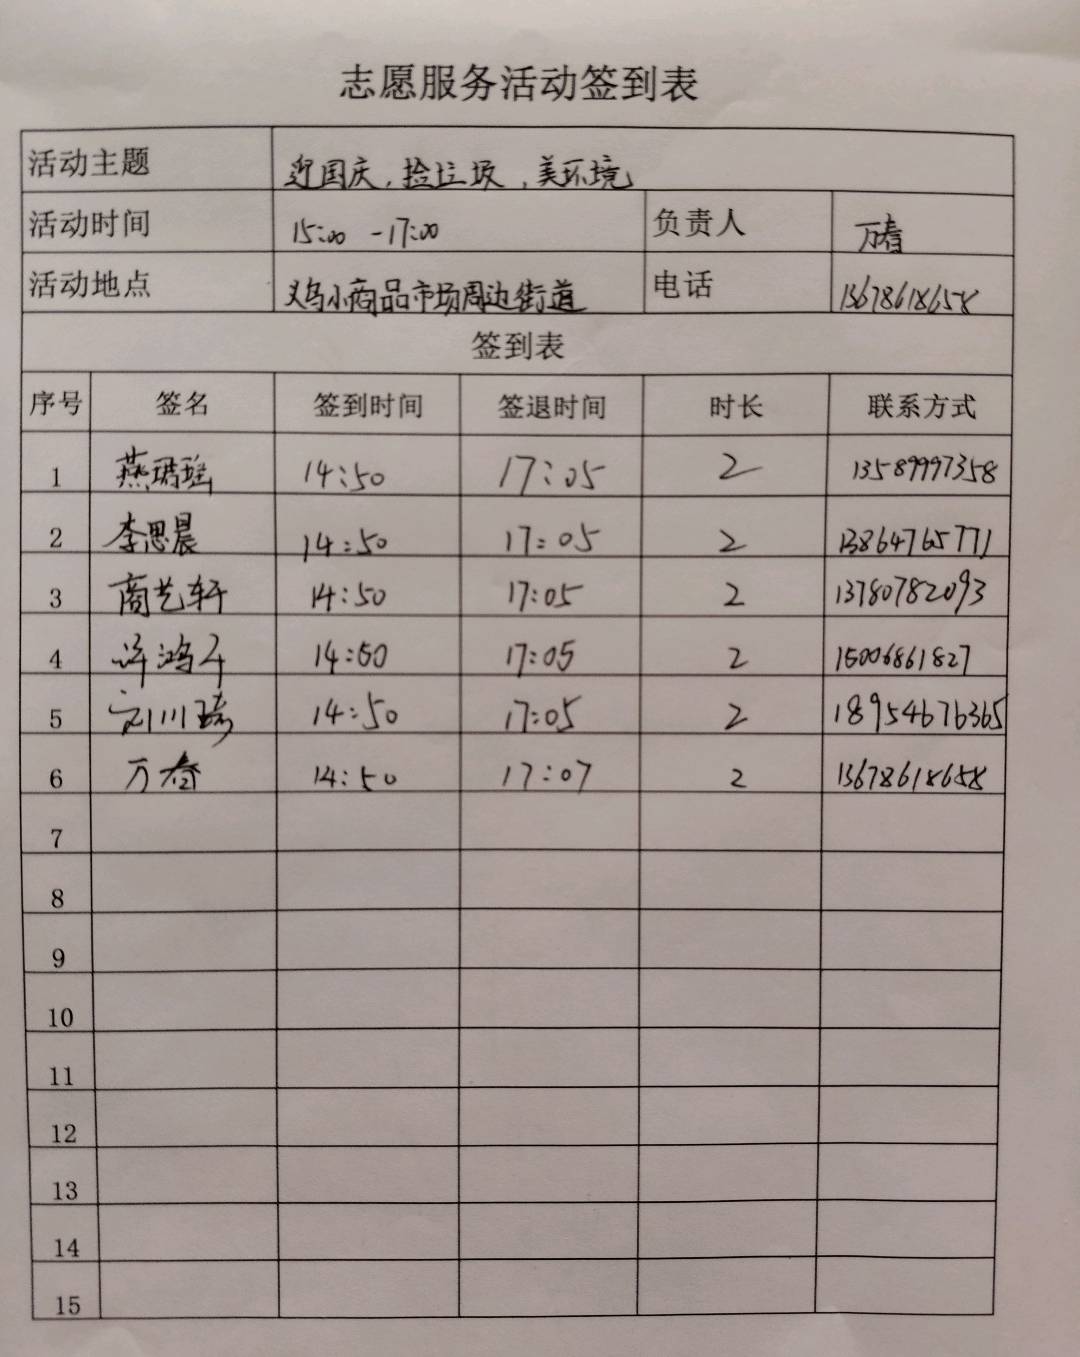 志愿服务活动签到表
活动主题 迎国庆,捡垃圾,美环境
活动时间 15:00 -17:00 负责人 万春
活动地点 义乌小商品市场周边街道 电话 13678618658
签到表
序号 签名 签到时间 签退时间 时长 联系方式
1 燕珺瑶 14:50 17:05 2 13589997358
2 李思晨 14:50 17:05 2 13864765771
3 商艺轩 14:50 17:05 2 13780782093
4 14:50 17:05 2 15006861827
5 刘川琦 14:50 17:05 2 18954676365
6 万春 14:50 17:07 2 13678618658
7
8
9
10
11
12
13
14
15